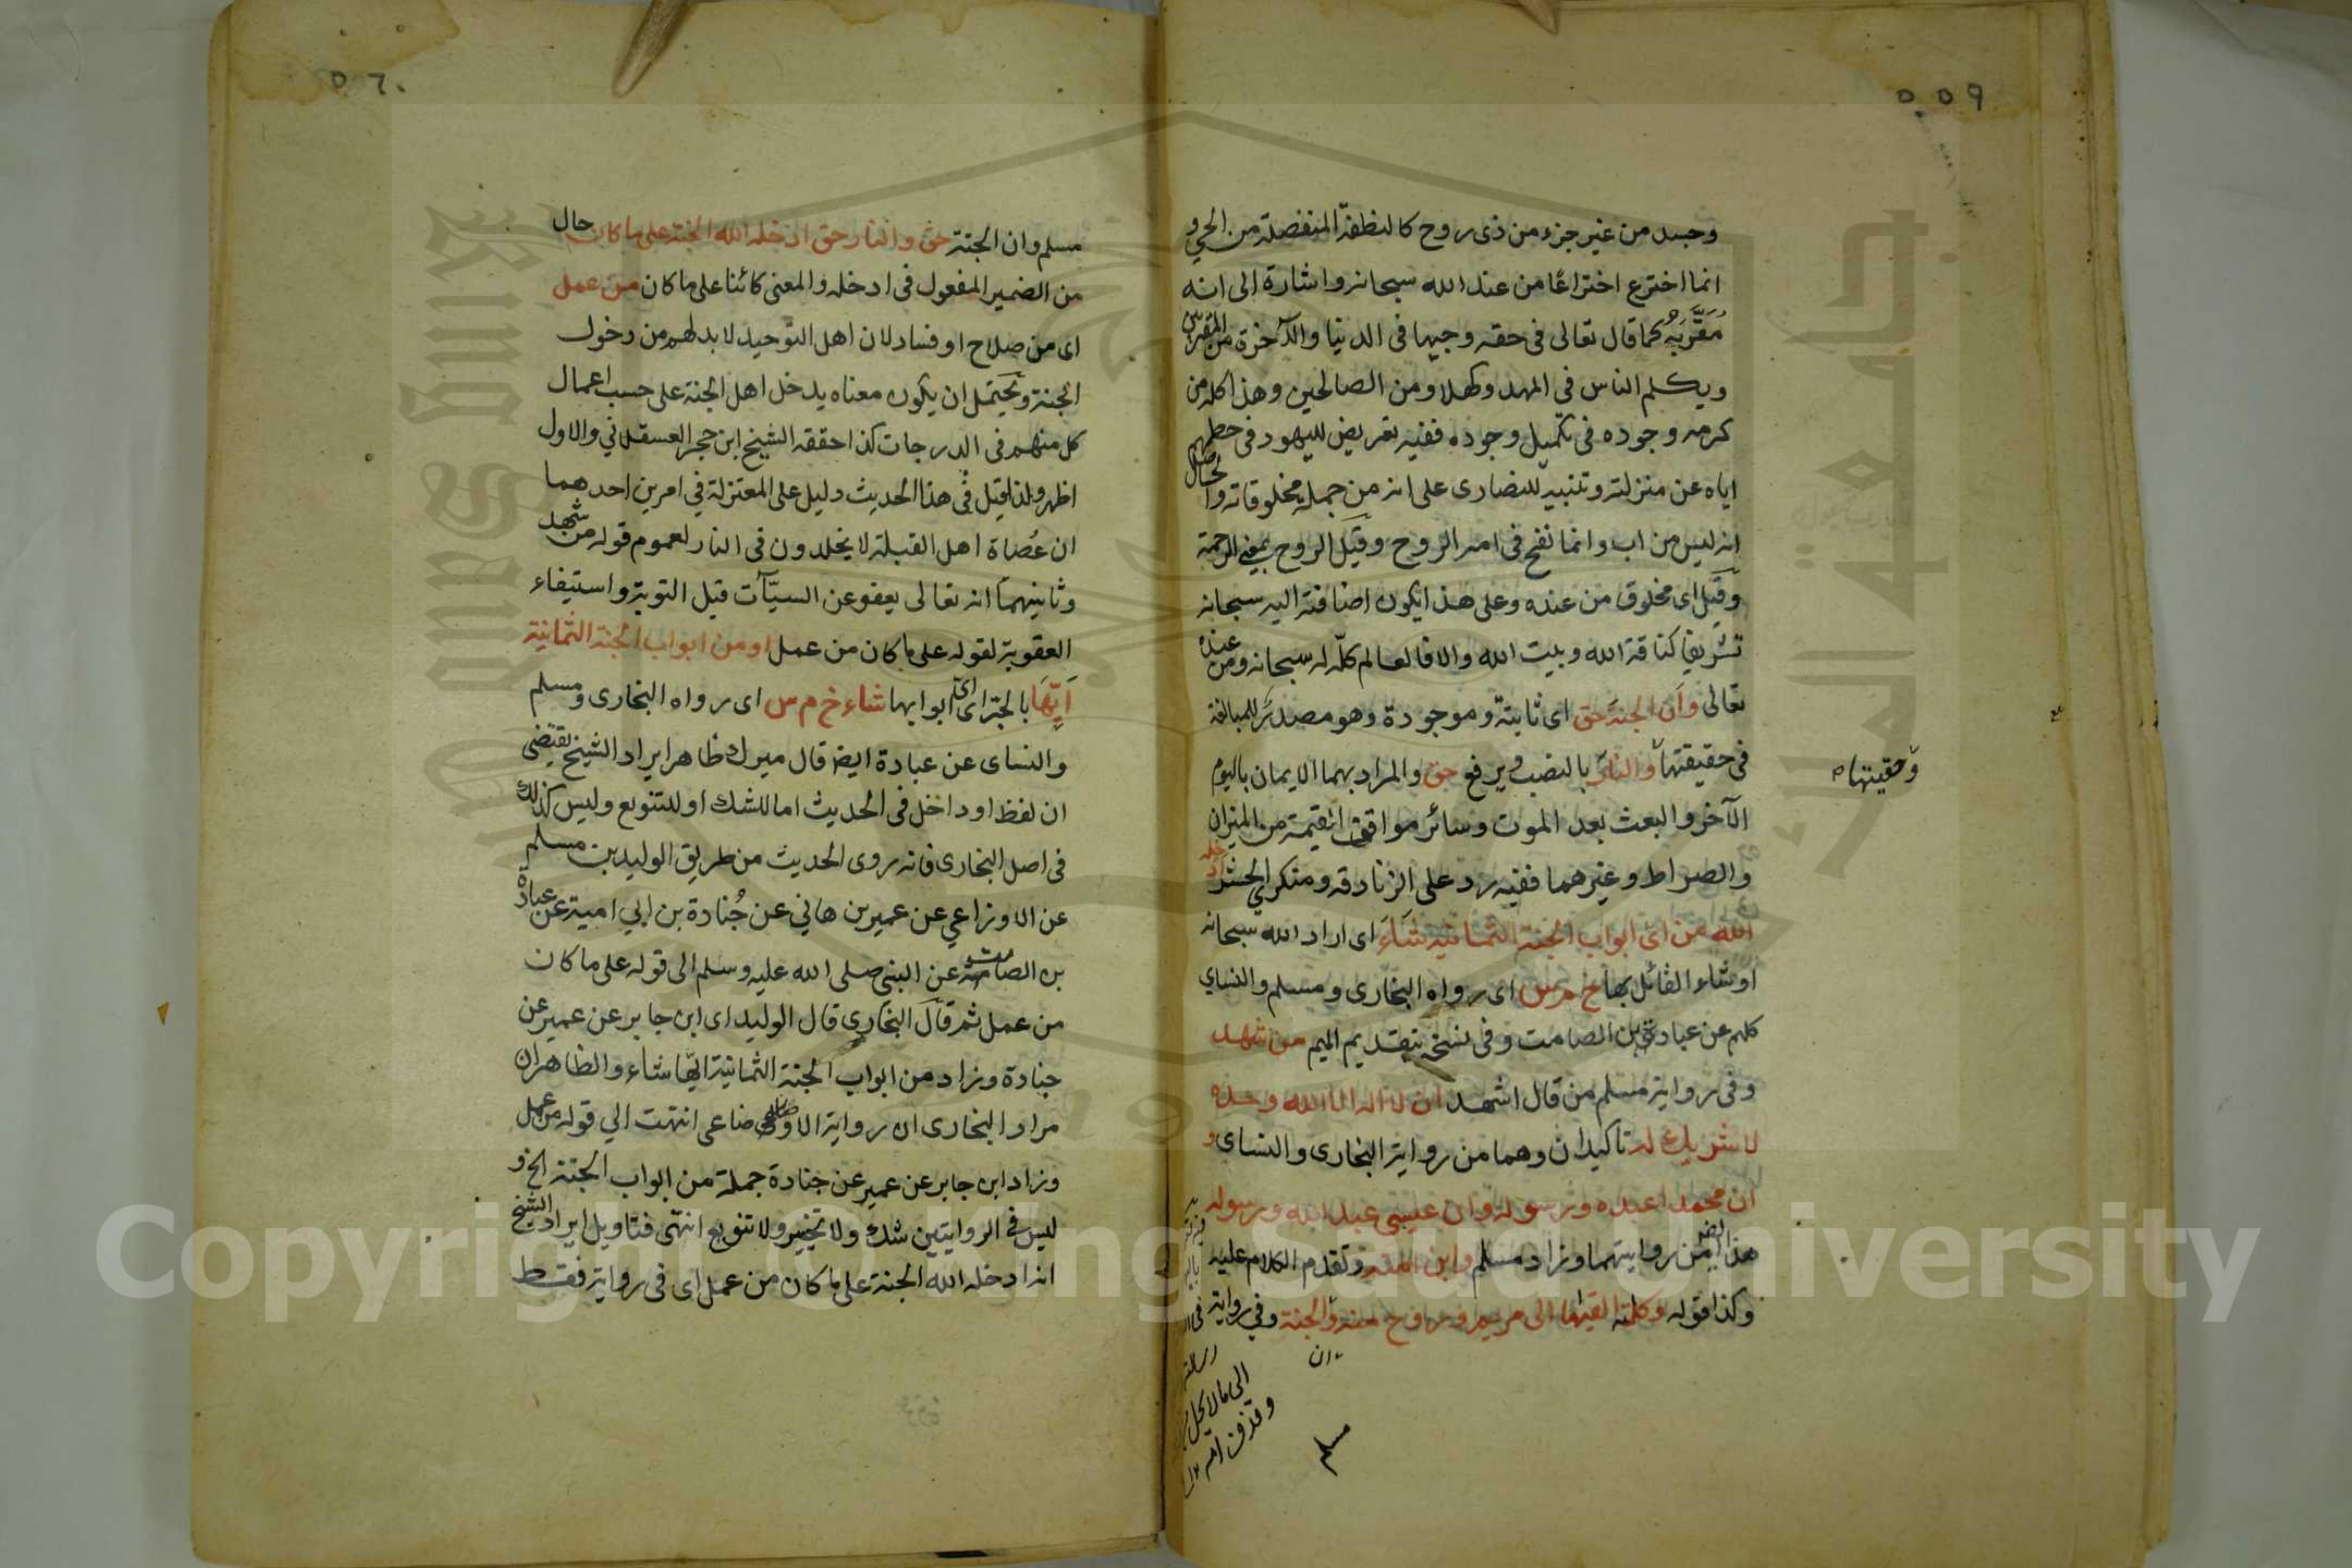 ٥٥٩
وجسد من غير جزء من ذى روح كالنطفة المنفصلة من الحي و
انما اخترع اختراعًا من عند الله سبحانه واشارة الى انه
مُقَرَّبُه كما قال تعالى فى حقه وجيها فى الدنيا والآخرة من المقربين
ويكلم الناس فى المهد وكهلا ومن الصالحين وهذا كله من
كرمه وجوده فى تكميل وجوده ففيه تعريض لليهود فى حطهم
اياه عن منزلته وتنبيه للنصارى على انه من جملة مخلوقاته والحاصل
انه ليس من اب وانما نفخ فى امه الروح وقيل الروح بمعنى الرحمة
وقيل اى مخلوق من عنده وعلى هذا يكون اضافته اليه سبحانه
تشريفا كناقة الله وبيت الله والا فالعالم كلّه له سبحانه ومن عنده
تعالى وان الجنة حق اى ثابتة وموجودة وهو مصدر للمبالغة
فى حقيقتها والنار بالنصب ويرفع حق والمراد بهما الايمان باليوم
وحقيتها
الآخر والبعث بعد الموت وسائر مواقف القيمة من الميزان
والصراط وغيرهما ففيه رد على الزنادقه ومنكري الحشر ادخله
الله من اى ابواب الجنة الثمانية شاء اى اراد الله سبحانه
او شاء القائل بها خ م س اى رواه البخارى ومسلم والنساي
كلهم عن عبادة بن الصامت وفى نسخه بتقديم الميم من شهد
وفى رواية مسلم من قال اشهد ان لا اله الا الله وحده
لا شريك له تاكيدان وهما من رواية البخارى والنساى و
ان محمدا عبده ورسوله وان عيسى عبد الله ورسوله
هذا ايضا من روايتهما وزاد مسلم وابن امته وتقدم الكلام عليه
وكذا قوله وكلمته القيها الى مريم وروح منه والجنة وفي رواية
ان
مسلم
الى ما لا يحل
وقذف امه
٥٦٠
مسلم وان الجنة حق والنار حق ادخله الله الجنة على ما كان حال
من الضمير المفعول فى ادخله والمعنى كائنا على ما كان من عمل
اى من صلاح او فساد لان اهل التوحيد لا بد لهم من دخول
الجنة ويحتمل ان يكون معناه يدخل اهل الجنة على حسب اعمال
كل منهم فى الدرجات كذا حققه الشيخ ابن حجر العسقلاني والاول
اظهر ولذا قيل في هذا الحديث دليل على المعتزلة في امرين احدهما
ان عُصاة اهل القبلة لا يخلدون فى النار لعموم قوله من شهد
وثانيهما انه تعالى يعفو عن السيّآت قبل التوبة واستيفاء
العقوبة لقوله على ما كان من عمل او من ابواب الجنة الثمانية
اَيِّهَا بالجر اى اىّ ابوابها شاء خ م س اى رواه البخارى ومسلم
والنساى عن عبادة ايض قال ميرك ظاهر ايراد الشيخ يقتضى
ان لفظ او داخل فى الحديث اما للشك او للتنويع وليس كذلك
فى اصل البخارى فانه روى الحديث من طريق الوليد بن مسلم
عن الاوزاعي عن عمير بن هاني عن جُنادة بن ابي امية عن عبادة
بن الصامت عن النبى صلى الله عليه وسلم الى قوله على ما كان
من عمل ثم قال البخاري قال الوليد اى ابن جابر عن عمير عن
جنادة وزاد من ابواب الجنة الثمانية ايّها شاء والظاهر ان
مراد البخارى ان رواية الاوضاعى انتهت الي قوله من عمل
وزاد ابن جابر عن عمير عن جنادة جملة من ابواب الجنة الخ و
ليس فى الروايتين شك ولا تخيير ولا تنويع انتهى فتاويل ايراد الشيخ
انه ادخله الله الجنة على ما كان من عمل اى فى رواية فقط
Copyright © King Saud University